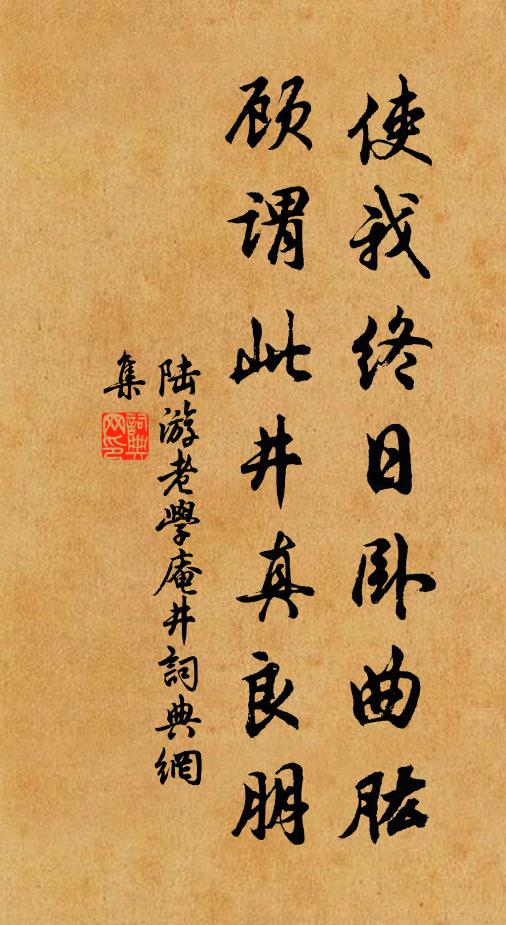 使我终日卧曲肱
顾谓此井真良朋
陆游老學庵井詞典網
集
詞典网印